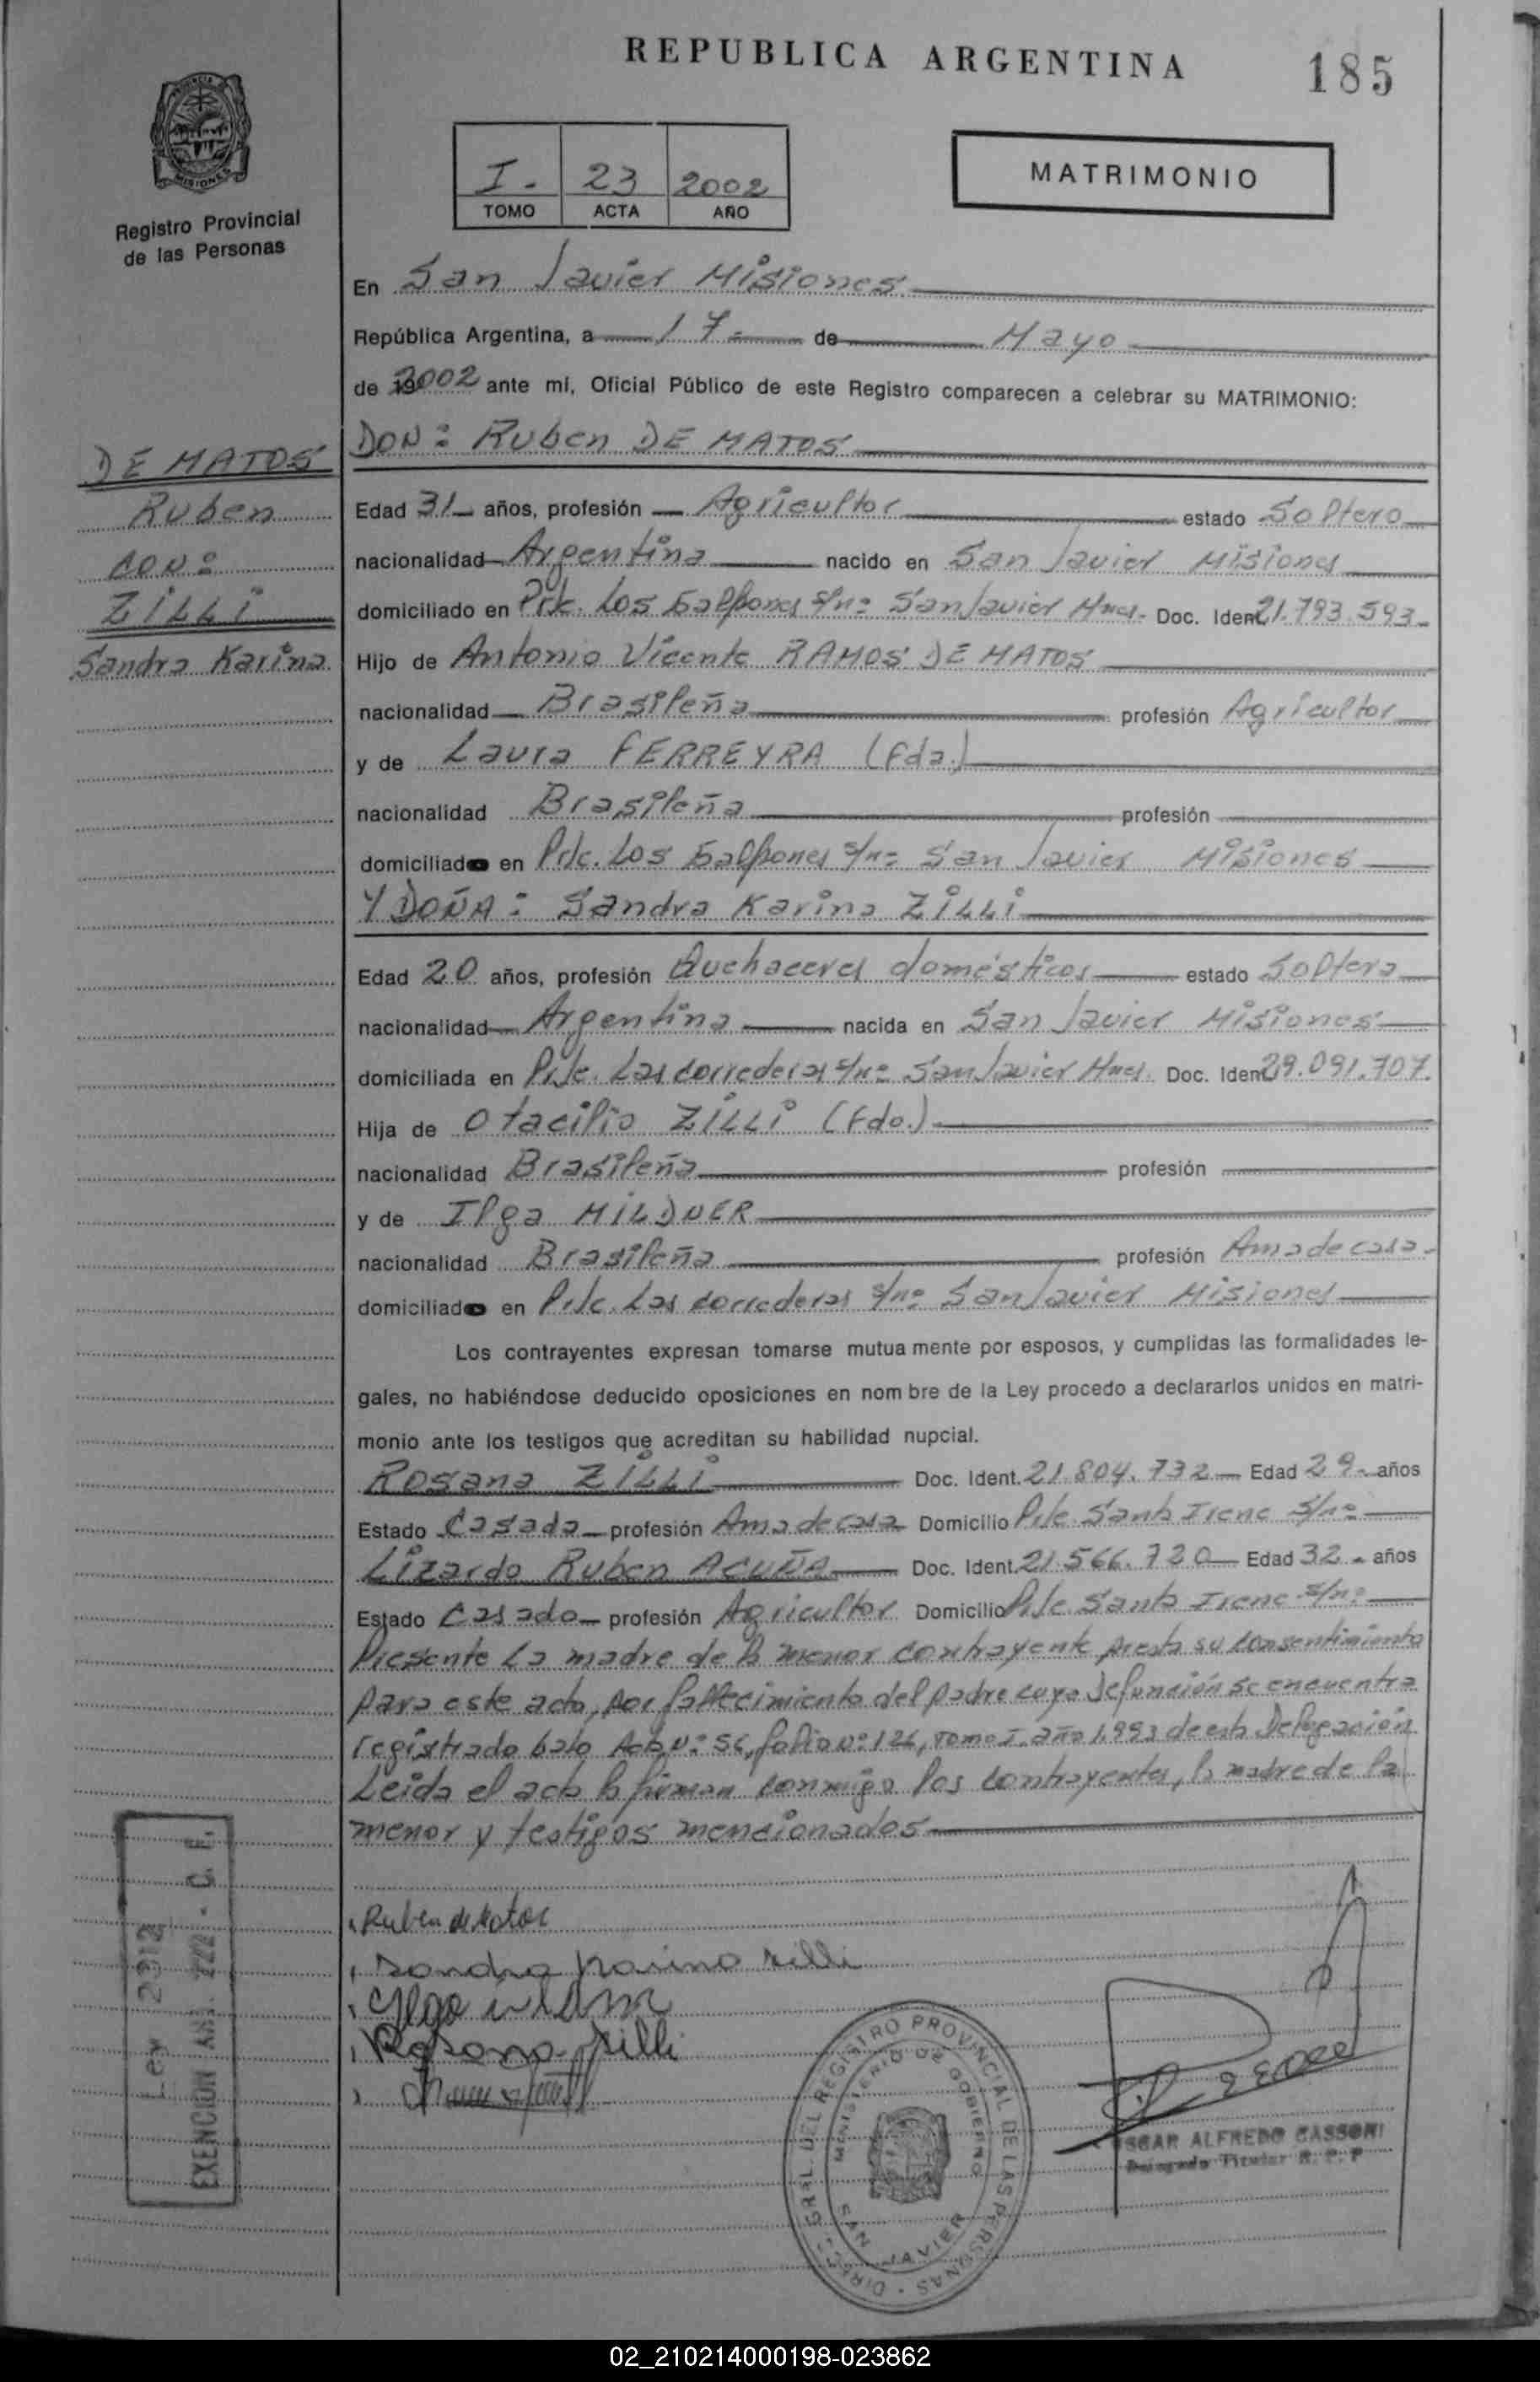 REPUBLICA ARGENTINA
185
PROVINCIA
MISIONES
Registro Provincial
de las Personas
I - 23 2002
TOMO ACTA AÑO
MATRIMONIO
En San Javier Misiones
República Argentina, a 17 - de Mayo
de 2002 ante mí, Oficial Público de este Registro comparecen a celebrar su MATRIMONIO:
DE MATOS
Ruben
CON:
ZILLI
Sandra Karina
DON: Ruben DE MATOS
Edad 31 años, profesión Agricultor estado Soltero
nacionalidad Argentina nacido en San Javier Misiones
domiciliado en Pje. Los Galpones s/nº San Javier Mnes. Doc. Ident 21.793.593.
Hijo de Antonio Vicente RAMOS DE MATOS
nacionalidad Brasileña profesión Agricultor
y de Laura FERREYRA (Fda.)
nacionalidad Brasileña profesión
domiciliado en Pje. Los Galpones s/nº San Javier Misiones
Y DOÑA: Sandra Karina ZILLI
Edad 20 años, profesión Quehaceres domésticos estado Soltera
nacionalidad Argentina nacida en San Javier Misiones
domiciliada en Pje. Las correderas s/nº San Javier Mnes. Doc. Ident 29.091.707.
Hija de Otacilio ZILLI (Fdo.)
nacionalidad Brasileña profesión
y de Ilga MILDNER
nacionalidad Brasileña profesión Ama de casa.
domiciliado en Pje. Las correderas s/nº San Javier Misiones
Los contrayentes expresan tomarse mutua mente por esposos, y cumplidas las formalidades le-
gales, no habiéndose deducido oposiciones en nom bre de la Ley procedo a declararlos unidos en matri-
monio ante los testigos que acreditan su habilidad nupcial.
Rosana ZILLI Doc. Ident. 21.804.732 Edad 29 años
Estado Casada profesión Ama de casa Domicilio Pje Santa Irene s/nº
Lizardo Ruben ACUÑA Doc. Ident. 21.566.720 Edad 32 años
Estado Casado profesión Agricultor Domicilio Pje Santa Irene s/nº
Presente la madre de la menor contrayente presta su consentimiento
para este acto, por fallecimiento del padre cuya defunción se encuentra
registrado bajo Acta Nº 56, folio Nº 126, Tomo I. año 1.993 de esta Delegación
Leida el acta la firman conmigo los contrayentes, la madre de la
menor y testigos mencionados
Ruben de Matos
Sandra Karina Zilli
Rosana Zilli
Ley 2912
EXENCION Art. 222 - C. F.
DIREC. GRAL. DEL REGISTRO PROVINCIAL DE LAS PERSONAS
MINISTERIO DE GOBIERNO
SAN JAVIER
OSCAR ALFREDO CASSONI
Delegado Titular R. P. P
02_210214000198-023862